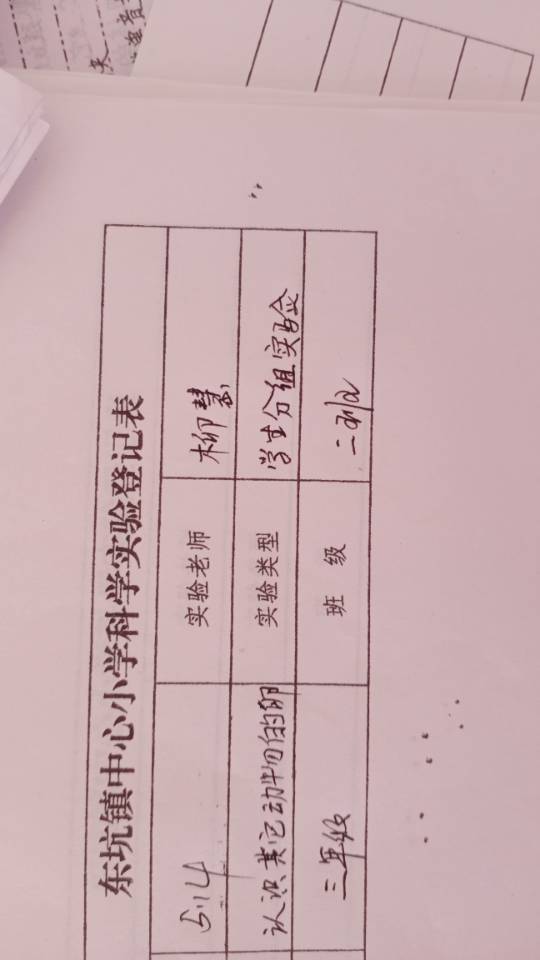 东坑镇中心小学科学实验登记表
5.14 实验老师 柳慧
认识其它动物的卵 实验类型 学生分组实验
三年级 班 级 二班